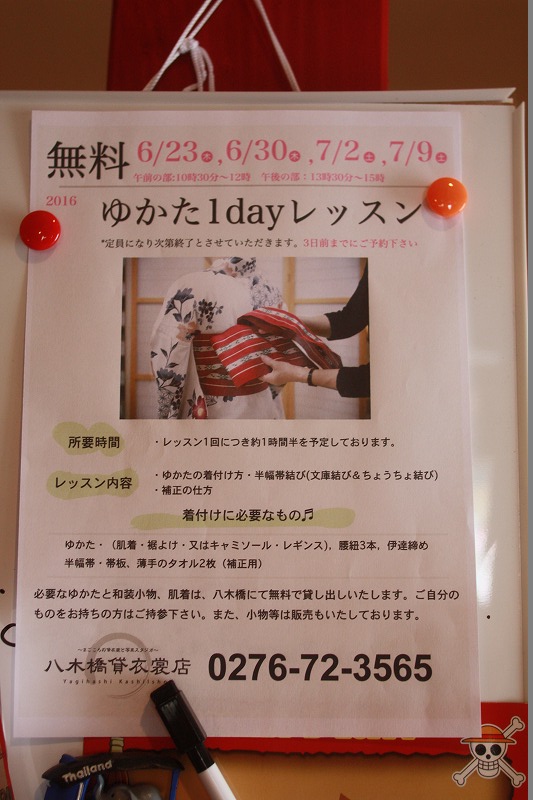 無料 6/23木,6/30木,7/2土,7/9土
午前の部:10時30分～12時　午後の部：13時30分～15時
2016
ゆかた1dayレッスン
*定員になり次第終了とさせていただきます。3日前までにご予約下さい
所要時間
・レッスン1回につき約1時間半を予定しております。
レッスン内容
・ゆかたの着付け方・半幅帯結び(文庫結び＆ちょうちょ結び)
・補正の仕方
着付けに必要なもの♬
ゆかた・（肌着・裾よけ・又はキャミソール・レギンス)，腰紐3本，伊達締め
半幅帯・帯板、薄手のタオル2枚（補正用）
必要なゆかたと和装小物、肌着は、八木橋にて無料で貸し出しいたします。ご自分の
ものをお持ちの方はご持参下さい。また、小物等は販売もいたしております。
～まごころの貸衣裳と写真スタジオ～
八木橋貸衣裳店
0276-72-3565
Yagihashi
Thailand